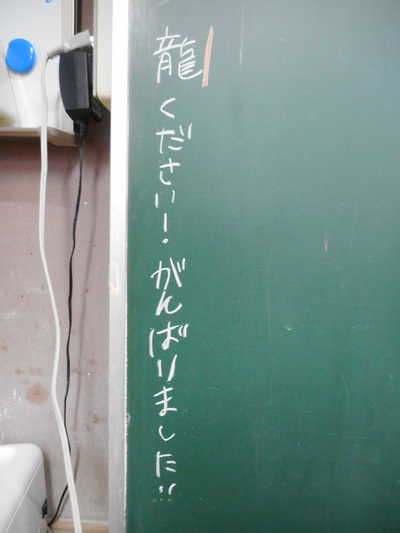 龍ください!。がんばりました!!